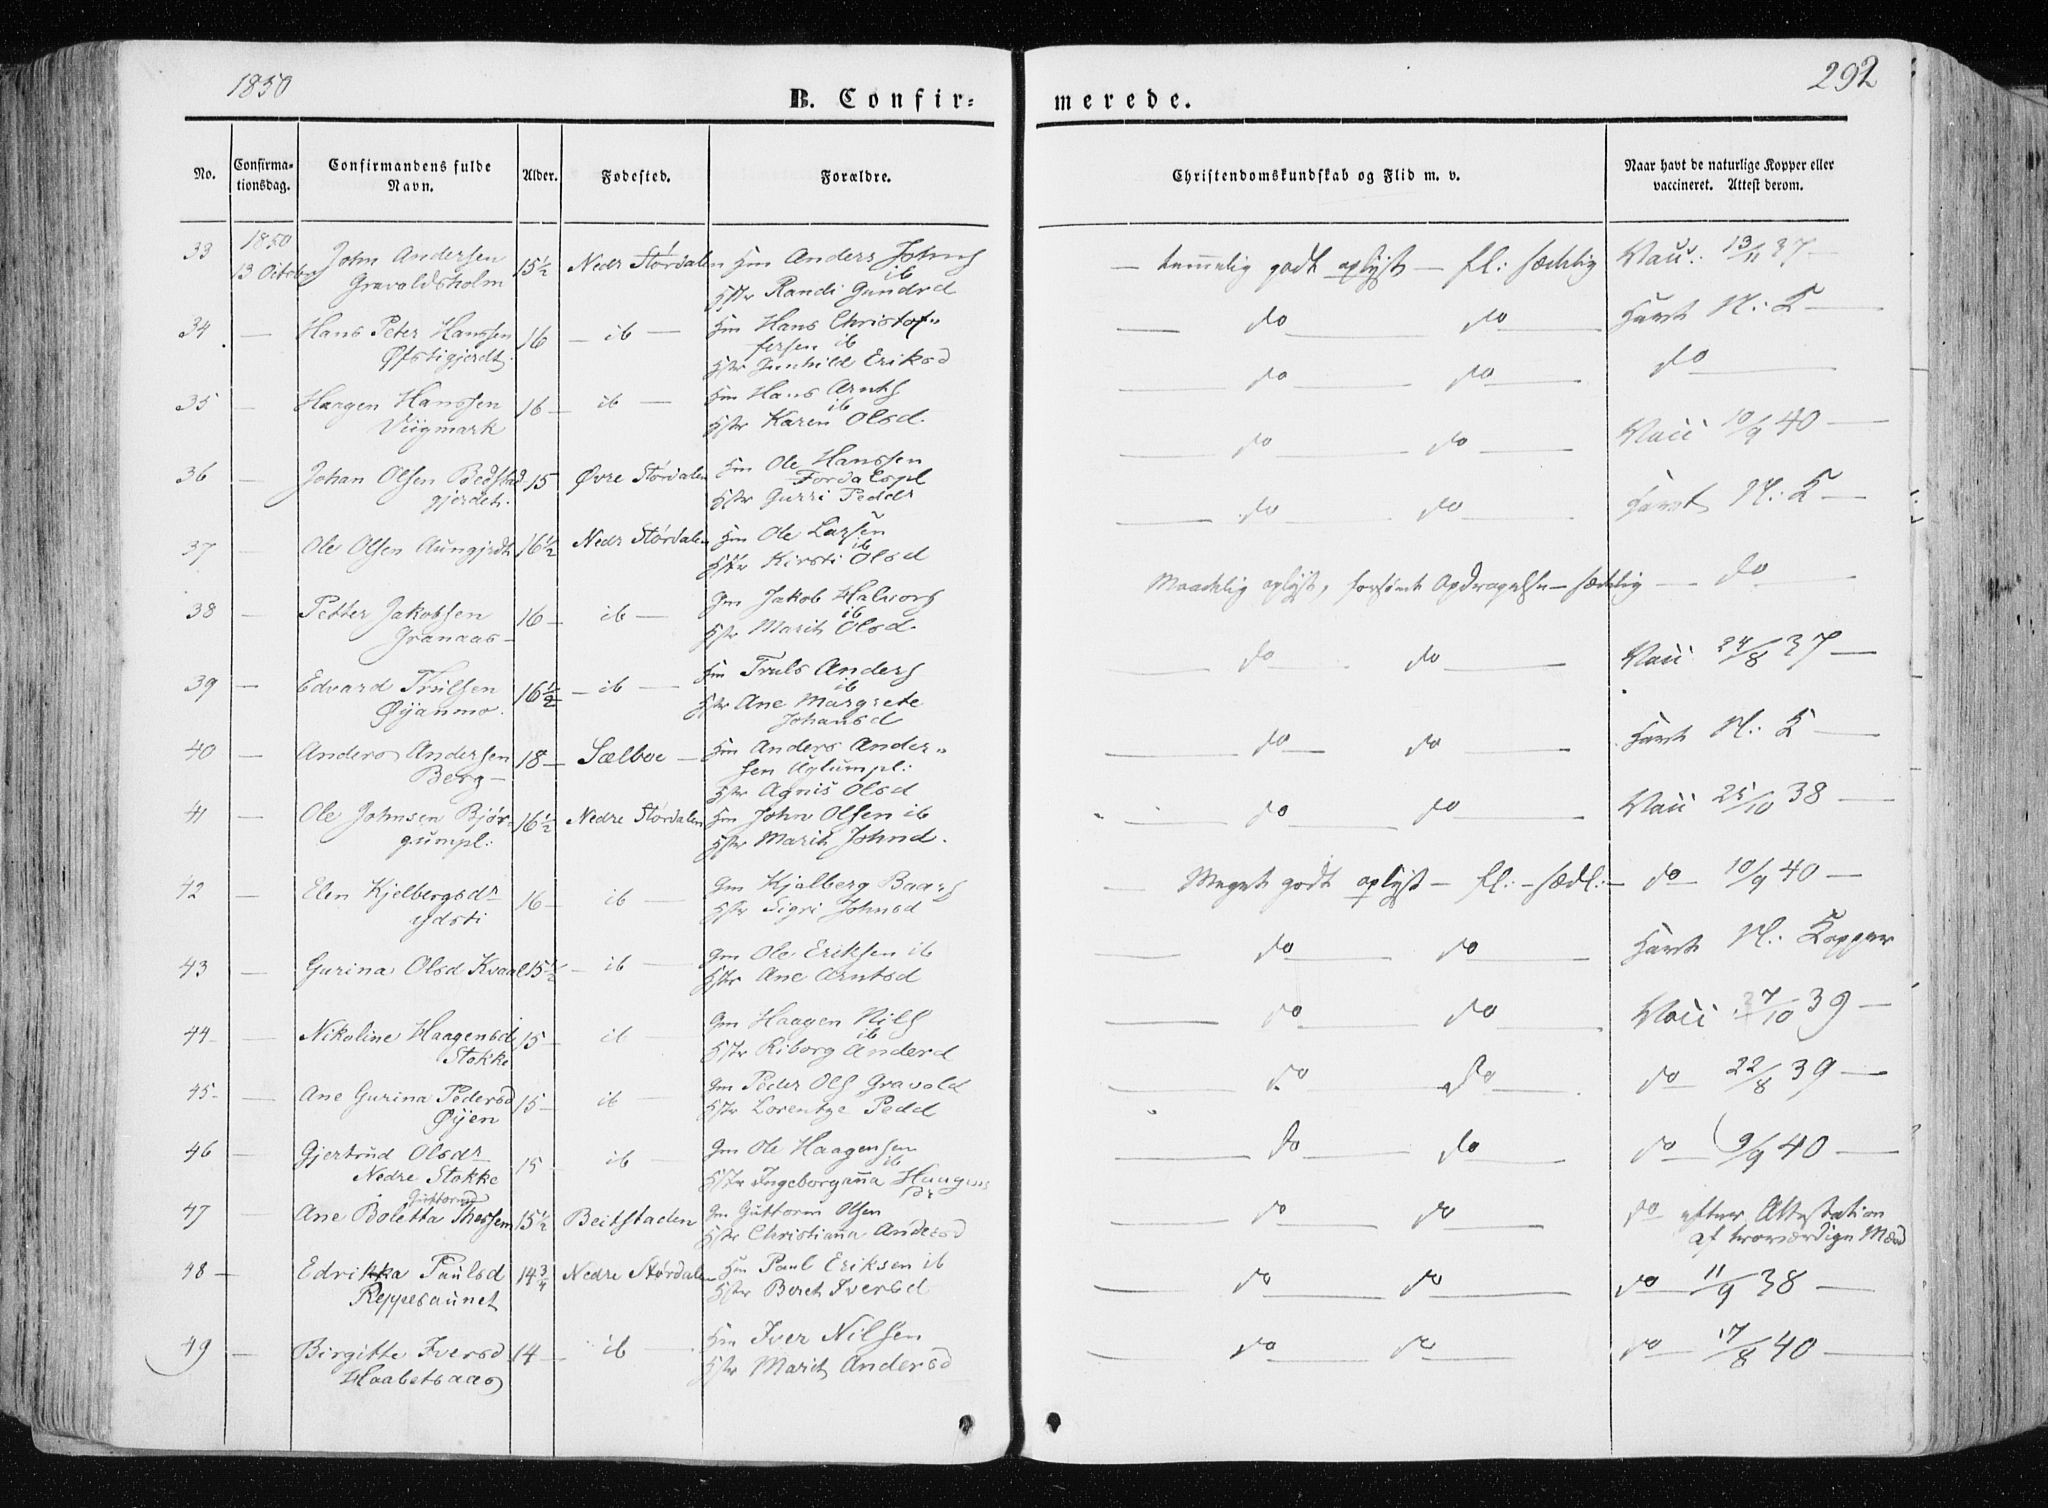 1850
292
B. Confir-
merede.
No.
Confirma-
tionsdag.
Confirmandens fulde
Navn.
Alder.
Fødested.
Forældre.
Christendomskundskab og Flid m. v.
Naar havt de naturlige Kopper eller
vaccineret. Attest derom.
33 1850 13 October John Andersen 15½ Nedr Størdalen Hm Anders Johns ib
Gravoldsholm Hstr Randi Gundrd
— temmelig godt oplyst — fl: sædelig Vacc: 13/11 37 —
34 — Hans Peter Hanssen 16 — ib — Hm Hans Christof„
Øfstigjerdt. fersen ib
Hstr Gunhild Eriksd
— do — do — Havt N: K —
35 — Haagen Hanssen 16 — ib — Hm Hans Arnts
Viigmark Hstr Karen Olsd. ib
— do — do — do —
36 — Johan Olsen Bedstad 15 Øvre Størdalen Hm Ole Hanssen
gjerdet. Fordalspl
Hstr Gurri Pedds
— do — do — Vacc 10/9 40 —
37 — Ole Olsen Aungjrdt 16½ Nedr Størdalen Hm Ole Larsen
Hstr Kirsti Olsd ib
— do — do — Havt N: K —
38 — Petter Jakobsen 16 — ib — Gm Jakob Halvors
Granaas — Hstr Marit Olsd ib
Maadelig oplyst, forsømt Opdragelse — sædelig — do —
39 — Edvard Trulsen 16½ — ib — Hm Truls Anders
Øyanmo. Hstr Ane Margrete ib
Johansd
— do — do — Vacc 24/8 37 —
40 — Anders Andersen 18 — Sælboe — Hm Anders Ander„
Berg — sen Uglumpl:
Hstr Agnis Olsd
— do — do — Havt N: K —
41 — Ole Johnsen Bjør- 16½ Nedre Størdalen Hm John Olsen ib
gumpl: Hstr Marit Johnd.
— do — do — Vacc 25/10 38 —
42 — Elen Kjelbergsdr 16 — ib — Gm Kjelberg Baars
ydsti Hstr Sigri Johnsd
— Meget godt oplyst — fl: — sædl: — do 10/9 40 —
43 — Gurina Olsd Kvaal 15½ — ib — Gm Ole Eriksen ib
Hstr Ane Arntsd
— do — do — Havt N: Kopper
44 — Nikoline Haagensd 15 — ib — Gm Haagen Nils
Stokke Hstr Riborg Anderd ib
— do — do — Vacc 27/10 39 —
45 — Ane Gurina Pedersd 15 — ib — Gm Peder Ols Gravold
Øyen Hstr Lorentze Pedd
— do — do — do 22/8 39 —
46 — Gjertrud Olsdr 15 — ib — Gm Ole Haagensen
Nedre Stokke Hstr Ingeborganna Haagens ib
dr
— do — do — do 9/9 40 —
47 — Ane Boletta 15½ Beitstaden Gm Guttorm Olsen
Hstr Christianna Andersd
— do — do — do efter Attestation
af troværdige Mænd
48 — Edrikka Paulsd 14¾ Nedre Størdalen Hm Paul Eriksen ib
Reppesaunet Hstr Beret Iversd
— do — do — do 11/9 38 —
49 — Birgitte Iversd 14 — ib — Hm Iver Nilsen
Haabetsaas Hstr Marit Andersd
— do — do — do 17/8 40 —